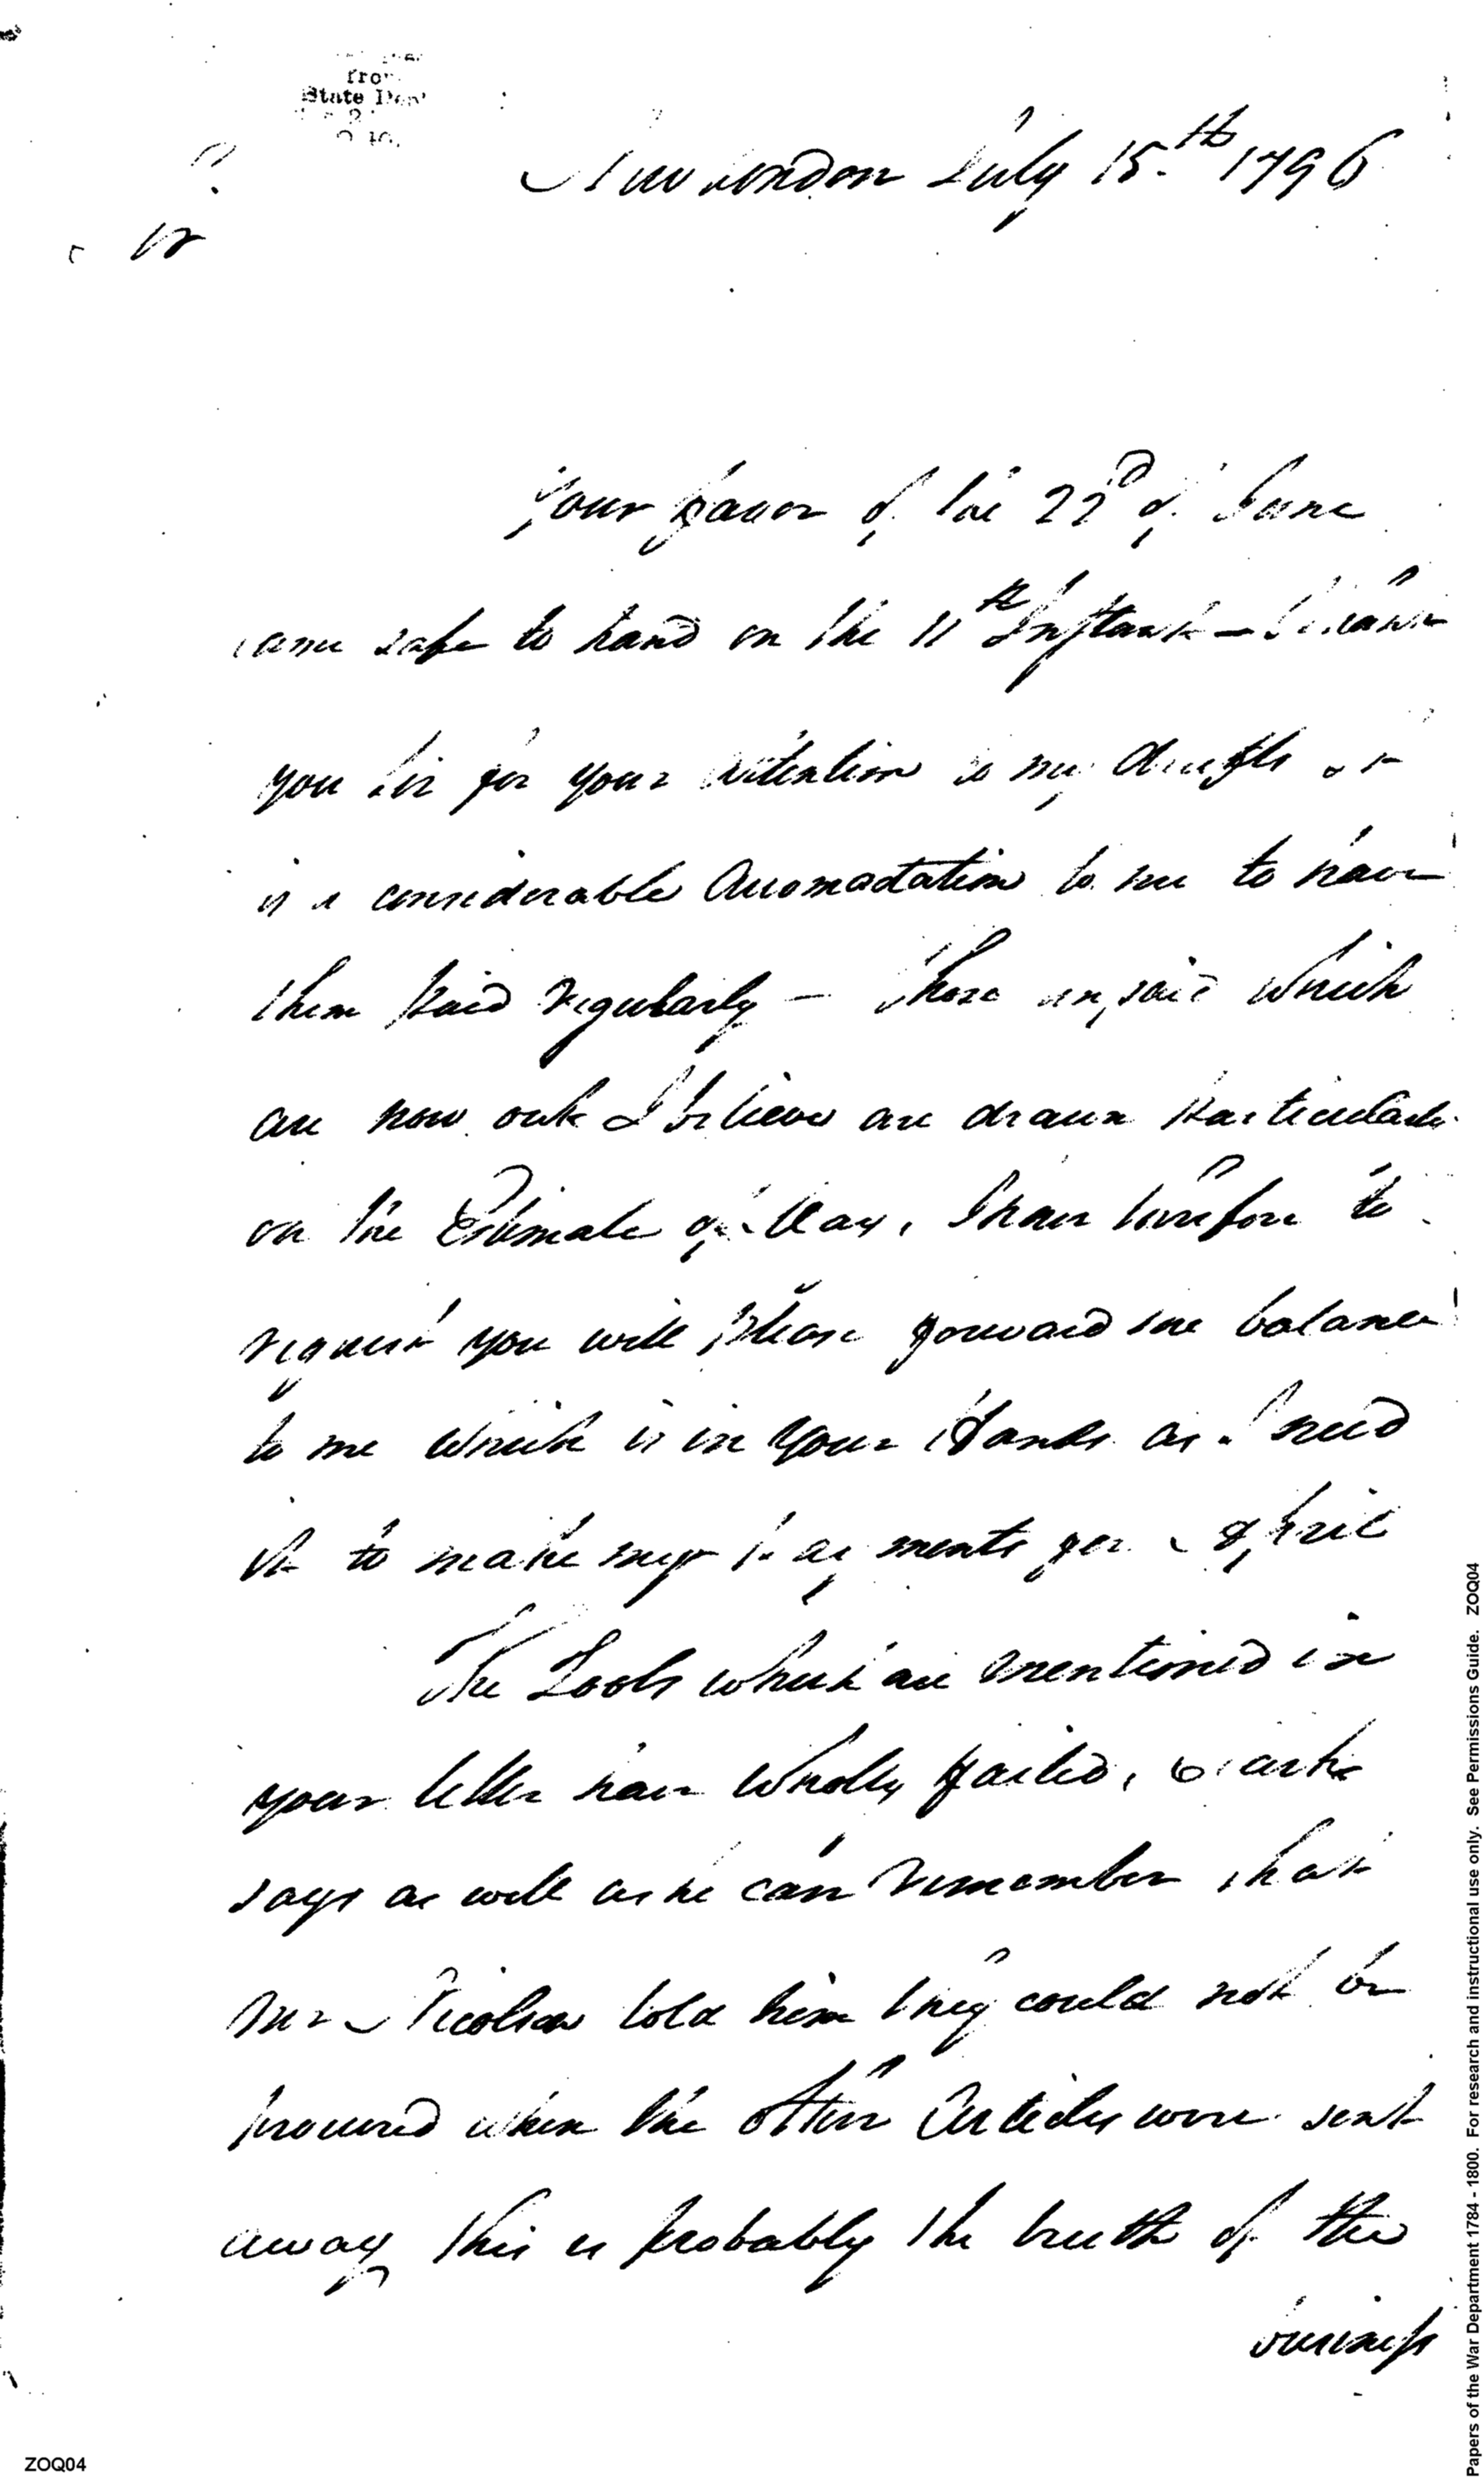 from
State Dep
New London July 15.th 1796
Sir
Your favor of the 22d of June
came safe to hand on the 11th Instant – I thank
you Sir for your attention to my drafts it
is a considerable Accomodation to me to have
them paid regularly – Those unpaid which
are now out I believe are drawn particularly
on the Estimate of May, I have therefore to
request you will please forward the balance
to me which is in your Hands as I need
it to make my payments for April
The Tools which are mentioned in
your letter have wholly failed,
says as well as he can remember that
Mr Nicolson told him they could not be
procured when the other Articles were sent
away, this is probably the truth of the
business
ZOQ04
Papers of the War Department 1784 - 1800. For research and instructional use only. See Permissions Guide. ZOQ04